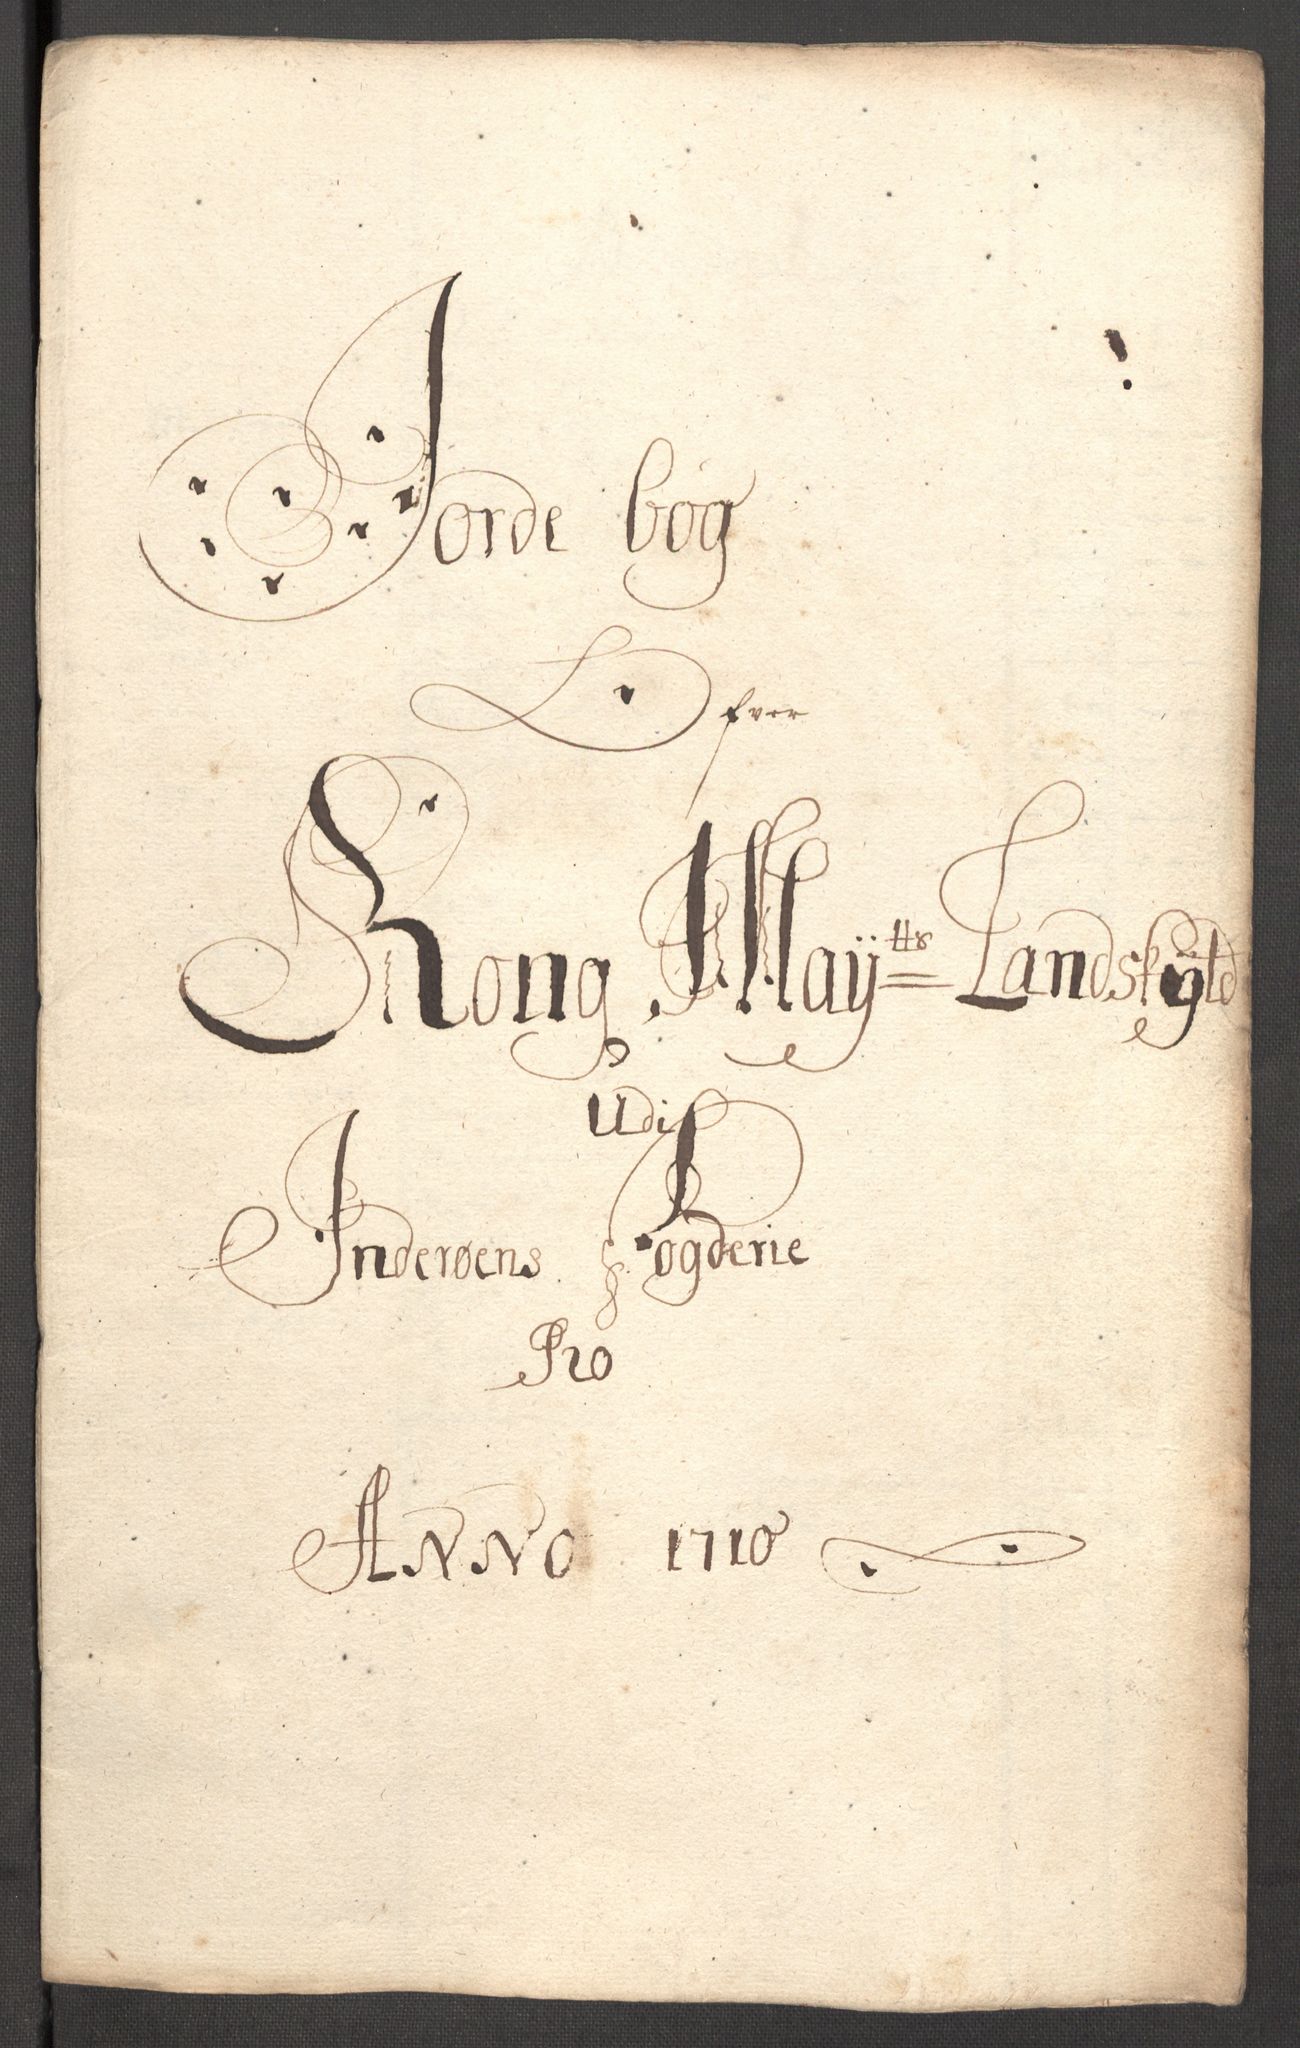 Jorde bog
Ofver
Kong Maÿtts Landskÿld
Udi
Inderøens Fogderie
Pro
ANNO 1710